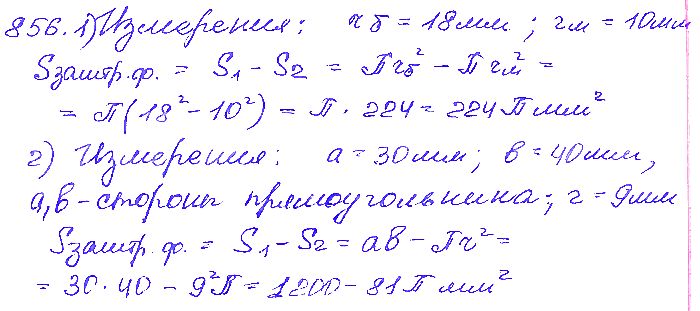 856. 1) Измерения: rб = 18мм; rм = 10мм
Sзаштр.ф. = S₁ - S₂ = Пrб² - Пrм² =
= П(18² - 10²) = П · 224 = 224П мм²
2) Измерения: a = 30мм; в = 40мм,
a, в - стороны прямоугольника; r = 9мм
Sзаштр.ф. = S₁ - S₂ = aв - Пr² =
= 30·40 - 9²П = 1200 - 81П мм²